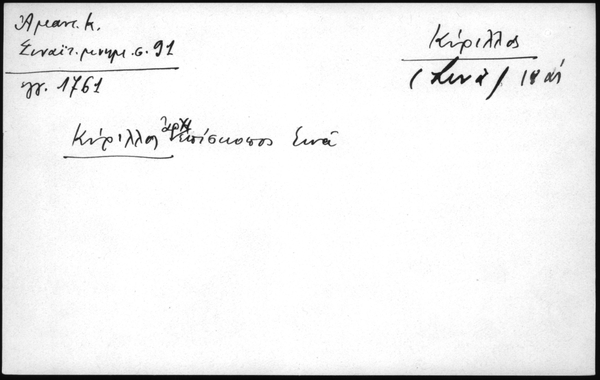 Ἀμαντ. Κ.
Σιναϊτ. μνημ. σ. 91
γγ. 1761
Κύριλλος
(Σινᾶ) 18 αἰ
Κύριλλος ἀρχιεπίσκοπος Σινᾶ